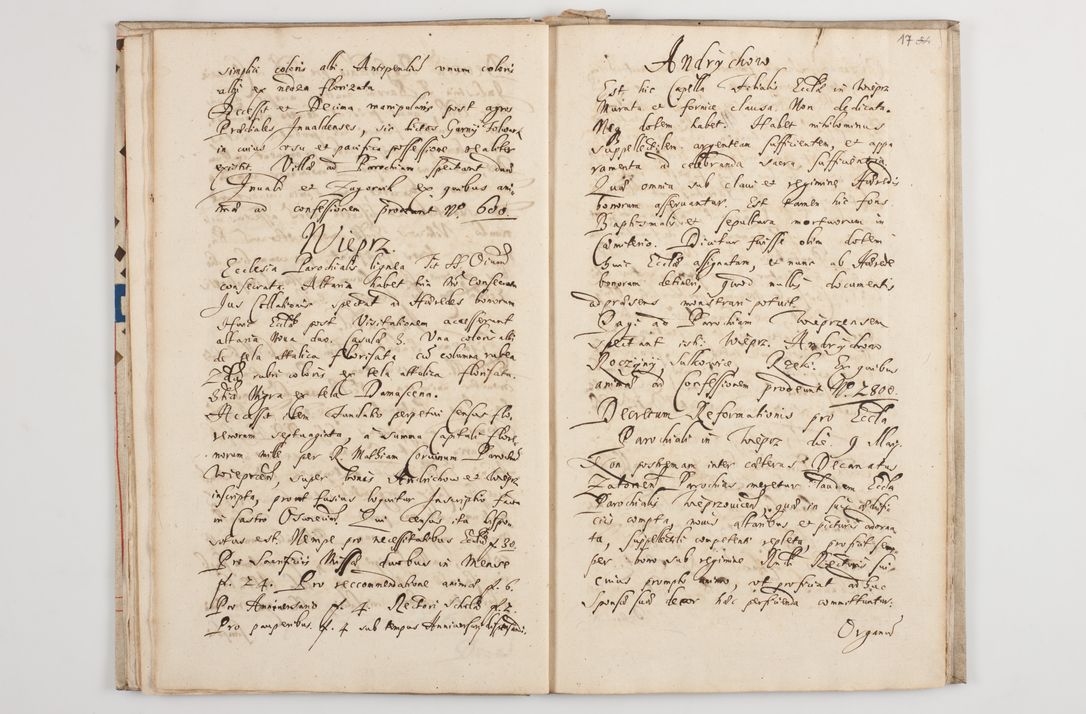 simplici coloris albi, Antependium unum coloris
albi ex
Accessit et Decima manipularis post agros
Prædiales Inualdenses, sic dictos
in cuius usu et pacifica possessione realiter
existit. Villæ ad Parochiam spectant duæ
Inuald et Zagornik ex quibus ani
mæ ad confessionem prodeunt Nº 600
Wieprz.
Ecclesia Parochialis lignea Tit SS Omnium
consecrata. Altaria habet tria Nō consecrata
Jus Collationis spectat ad Hæredes bonorum
Huic Ecclæ post Visitationem accesserunt
altaria Noua duo. Casulæ 3. Una coloris albi
de tela attalica florisata cū columna rubea
2da rubri coloris ex tela attalica florisata
3tia Nigra ex tela Damascena.
Accessit item Fundatio perpetui Census flo
renorum septuaginta, a summa Capitali flore
norum mille per R. Mathiam Coruinum Parochum
Wieprcen super bonis Andrichow et Wieprz
inscripta, prout fusius loquitur Inscriptio facta
in Castro Osuiecim. Qui Census ita dispo
situs est. Nempe pro necessitatibus Ecclæ f. 30
Pro Sacrificijs Missæ duobus in Mense
fl. 24. Pro reccommendatione animæ fl. 6.
Pro Anniuersario fl. 4 Rectori Scholæ fl. 2.
Pro pauperibus fl. 4 sub tempus Anniuersarij
17
Andrychow
Est hic Capella filialis Ecclæ in Wieprz
Murata et fornice clausa. Non dedicata.
Neq dotem habet. Habet nihilominus
suppellectilem argenteam sufficientem, et appa
ramenta ad celebranda sacra sufficientia
Quæ omnia sub claui et regimine Hæredis
bonorum asseruantur. Est tamen hic fons
Baptismalis et sepultura mortuorum in
Cæmiterio. Dicitur fuisse olim dotem
huic Ecclæ assignatam, et nunc ab Hærede
bonorum detineri, quod nullis documentis
ad præsens monstrari potuit.
Pagi ad Parochiam Wieprzensem
spectant isti. Wieprz. Andrychow
Roczyny, Sulkowice Rzeki. Ex quibus
animæ ad Confessionem prodeunt Nº 2800.
Decretum Reformationis pro Eccla
Parochiali in Wieprz die 9 Maij.
Non postremam inter cæteras Decanatus
Zatorien Parochias meretur laudem Eccla
Parochialis Wieprzouicen, quæ in suis ædifi
cijs compta, nouis altaribus et picturis adorna
ta, suppellectili competenti repleta, proficit semp
per bono sub regimine Rndi Rectoris sui
cuius prompto animo ut proficiat adhuc
Sponsæ suæ decor hæc perficienda committuntur.
Organū